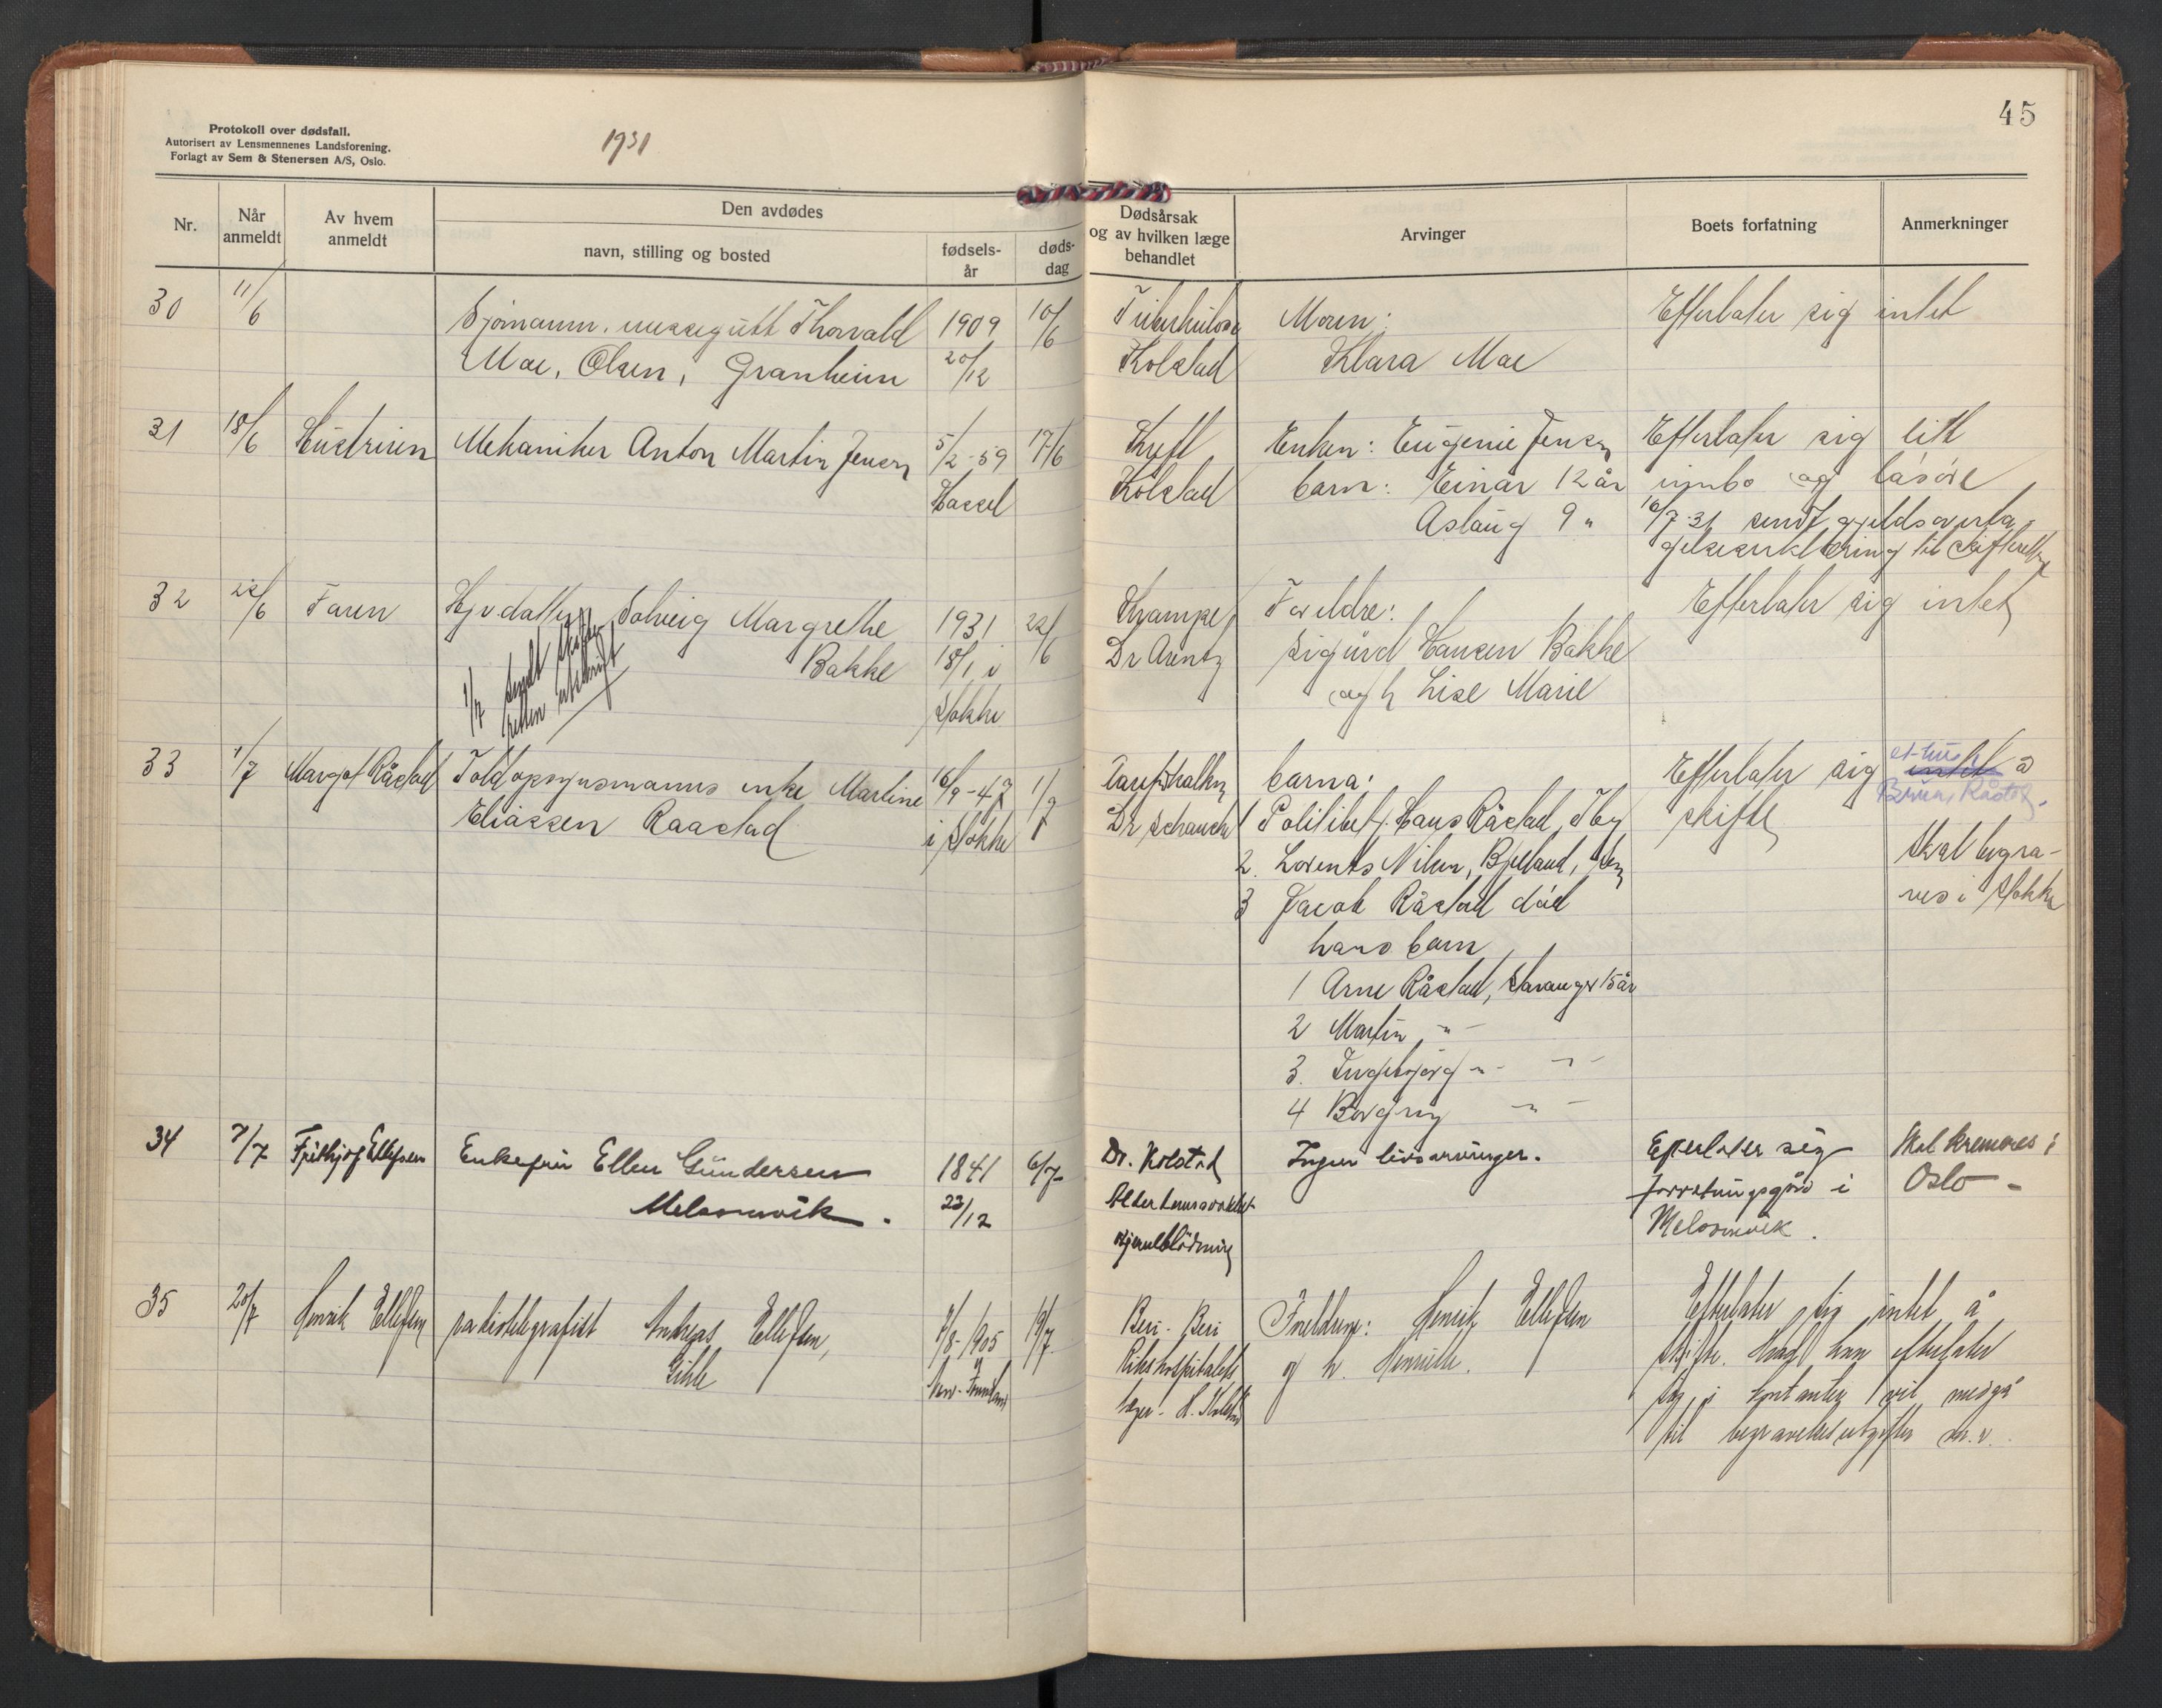 Protokoll over dødsfall.
Autorisert av Lensmennenes Landsforening.
Forlagt av Sem & Stenersen A/S, Oslo.
1931
45
Nr.
Når anmeldt
Av hvem anmeldt
Den avdødes
navn, stilling og bosted
fødsels-år
døds-dag
Dødsårsak og av hvilken læge behandlet
Arvinger
Boets forfatning
Anmerkninger
30 11/6 Sjømann, messegutt Thorvald 1909 10/6 Tuberkulose Moren: Efterlater sig intet
Moe, Olsen, Granheim 20/12 Kolstad Klara Moe
31 18/6 Hustruen Mekaniker Anton Martin Jensen 5/2-59 17/6 Kreft Enken: Eugenie Jensen Efterlater sig litt
Hassel Kolstad barn: Einar 12 år innbo og løsøre
Aslaug 9 " 10/7-31 sendt gjeldsoverta-
gelseserklæring til skifteretten
32 22/6 Faren Datter Solveig Margrethe 1931 22/6 Krampe Foreldre: Efterlater sig intet
Bakke 18/1 i Dr Arentz Sigurd Hansen Bakke
1/7 sendt skifte-
retten utskrift
Stokke og h Lise Marie
33 1/7 Margot Råstad Toldopsynsmanns enke Martine 16/9-47 1/7 barna: Efterlater sig intet å
Eliassen Raastad i Stokke Dr Schanche 1 Politibetj. Hans Råstad, Tbg skifte
2. Lorents Nilsen, Bjelland, Sem Skal begra-
3 Jacob Råstad død ves i Stokke
hans barn
1 Arne Råstad, Stavanger 15 år
2 Martin "
3. Ingebjørg " "
4 Borgny " -
34 7/7 Frithjof Ellefsen Enkefru Ellen Gundersen 1841 6/7 Dr. Kolstad Ingen livsarvinger. Efterlater sig Skal kremeres i
Melsomvik. 23/12 Alderdomssvakhet forretningsgård i Oslo -
Hjerneblødning Melsomvik.
35 20/7 Henrik Ellefsen radiotelegrafist Andreas Ellefsen, 7/8-1905 19/7 Beri-Beri Foreldrene: Henrik Ellefsen Efterlater sig intet å
Gihle Rikshospitalets og h. Henriette. skifte. Hvad han efterlater
læger - H. Kolstad sig i kontanter vil medgå
til begravelsesutgifter m.v.